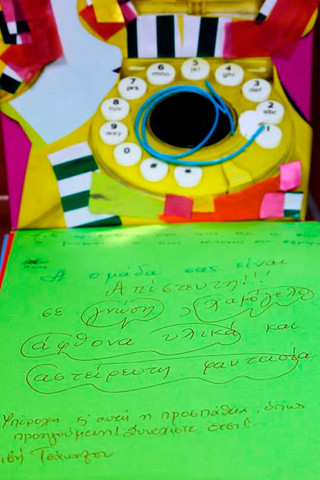 5
jkl
6
mno
4
ghi
7
prs
3
def
8
tuv
2
abc
9
wxy
1
0
*
#
Η ομάδα σας είναι
Απίστευτη!!!
σε γνώση, χαμόγελο
άφθονα υλικά και
αστείρευτη φαντασία
Υπέροχη κ' αυτή η προσπάθεια, όπως
προηγούμενη! Συνεχίστε έτσι!